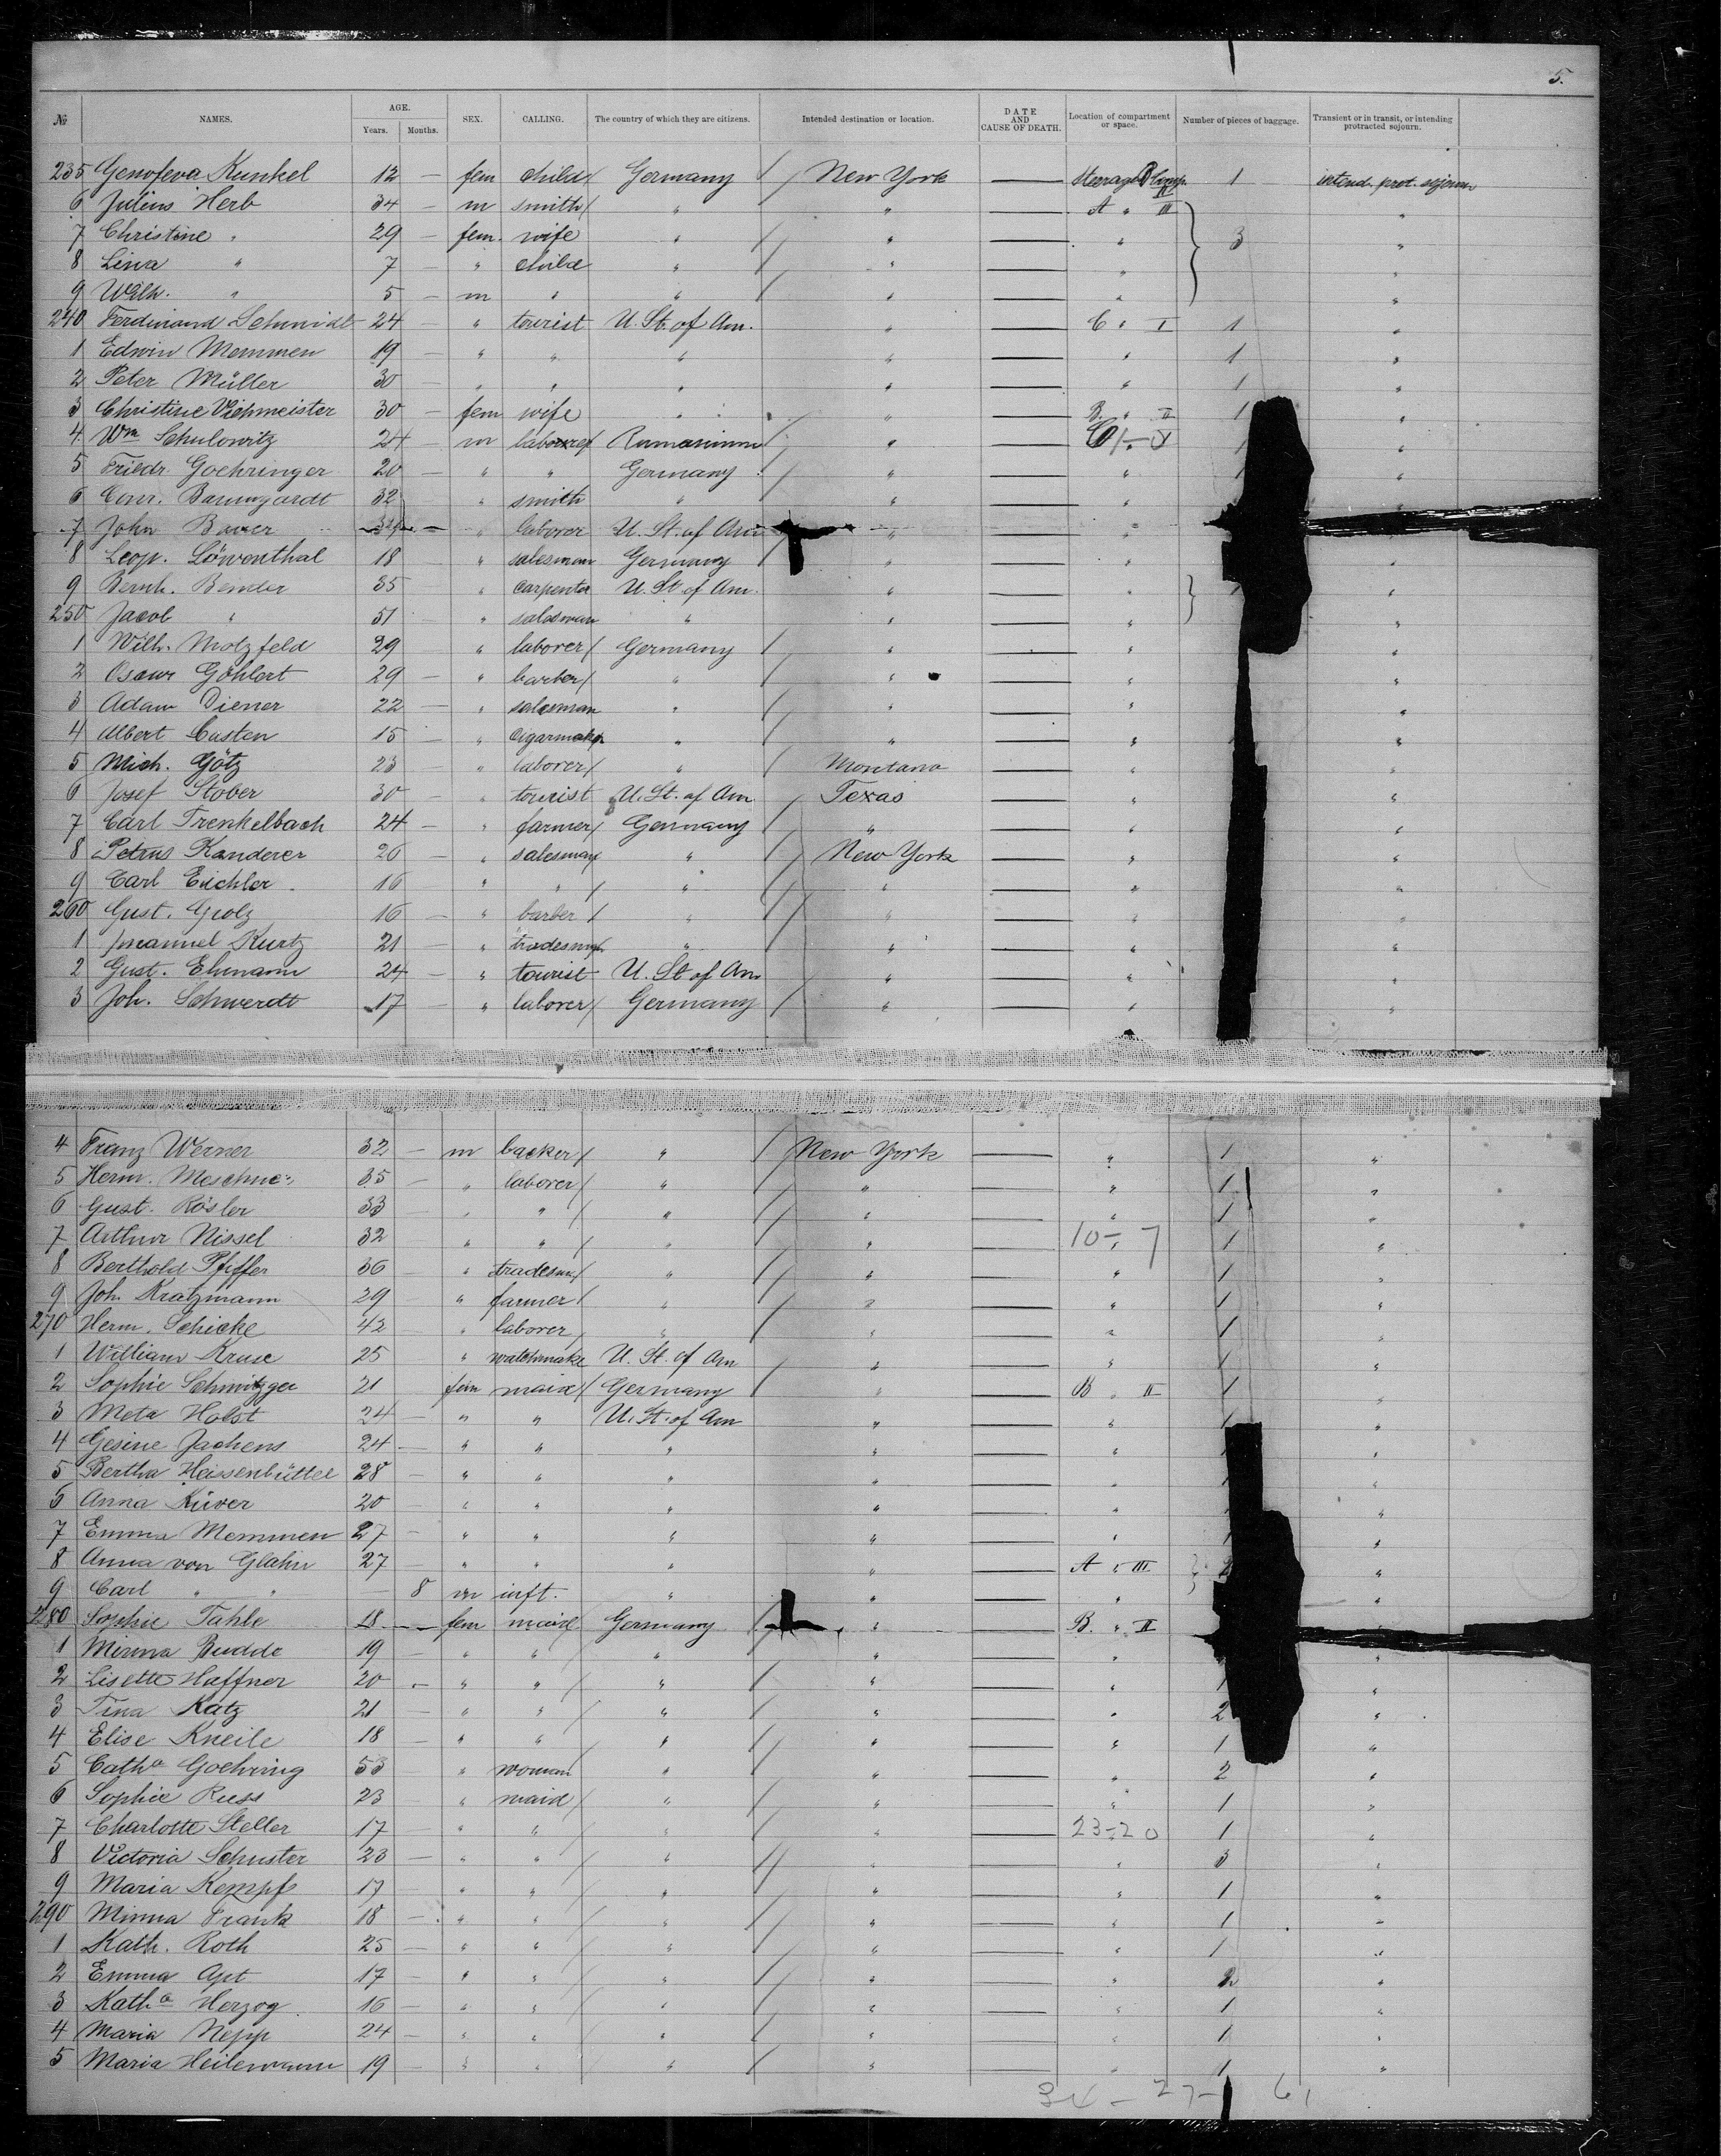 5.
№ NAMES. AGE. Years. Months. SEX. CALLING. The country of which they are citizens. Intended destination or location. DATE AND CAUSE OF DEATH. Location of compartment or space. Number of pieces of baggage. Transient or in transit, or intending protracted sojourn.
235 Genofeva Kunkel 12 — fem child / Germany / New York — Steerage 1 intend. prot. sojourn
6 Julius Herb 34 — m smith / " / " — A " III "
7 Christine " 29 — fem. wife " / " — " 3 "
8 Lina " 7 — " child " / " — " "
9 Wilh. " 5 — m " " / " — " "
240 Ferdinand Schmidt 24 — " tourist U. St. of Am. " — C " I 1 "
1 Edwin Memmen 19 — " " " " — " 1 "
2 Peter Müller 30 — " " " " — " 1 "
3 Christine Viehmeister 30 — fem wife " " — B. " II 1 "
4 Wm Schulowitz 24 — m laborer / / " — 1 "
5 Friedr. Goehringer 20 — " " Germany / " — " 1 "
6 Conr. Baumgardt 32 " smith " / " — " "
7 John Bauer — " laborer U. St. of Am " — " "
8 Leop. Löwenthal 18 — " salesman Germany / " — " "
9 Bernh. Bender 35 " carpenter U. St. of Am. " — " "
250 Jacob " 51 " salesman " " — " "
1 Wilh. Motzfeld 29 " laborer / Germany / " — " "
2 Oscar Göhlert 29 — " barber / " / " — " "
3 Adam Diener 22 — " salesman " / " — " "
4 Albert Casten 15 — " cigarmaker " / " — " "
5 Mich. Götz 23 " laborer / " / Montana — " "
6 Josef Stober 30 — " tourist U. St. of Am. Texas — " "
7 Carl Trenkelbach 24 — " farmer / Germany / " — " "
8 Petrus Kanderer 26 — " salesman / " / New York — " "
9 Carl Eichler 16 " " / " / " — " "
260 Gust. Grolz 16 — " barber / " / " — " "
1 Imanuel Kurtz 21 — " tradesman " / " — " "
2 Gust. Ehmann 24 — " tourist U. St of Am " — " "
3 Joh. Schwerdt 17 — " laborer / Germany / " — " "
4 Franz Werner 32 — m backer / " / New York — " 1 "
5 Herm. 35 — " laborer / " / " — " 1 "
6 Gust. Rösler 33 " " / " / " — " 1 "
7 Arthur Nissel 32 " " / " / " — 10-7 1 "
8 Berthold Pfiffer 36 " / " / " — " 1 "
9 Joh. Kratzmann 29 " farmer / " / " — " 1 "
270 Herm. Schicke 42 " laborer " / " — " 1 "
1 William Kruse 25 " watchmake U. St. of Am " — " 1 "
2 Sophie 21 fem maid / Germany / " — B " II 1 "
3 Meta Holst 24 — " " U. St. of Am " — " 1 "
4 Gesine Jachens 24 — " " " " — " "
5 Bertha Heissenbüttel 28 — " " " " — " "
6 Anna Küver 20 — " " " " — " "
7 Emma Memmen 27 — " " " " — " "
8 Anna von Glahn 27 — " " " " — A " III "
9 Carl " " — 8 m inft. " " — " "
280 Sophie Tahle 18 — fem maid Germany / " — B. " II
1 Minna Budde 19 — " " " " — " "
2 Lisette Haffner 20 — " " / " / " — " 1 "
3 Tina Katz 21 — " " / " / " — " 2 "
4 Elise Kneile 18 — " " " / " — " 1 "
5 Catha Goehring 53 — " woman " / " — " 2 "
6 Sophie Russ 23 — " maid / " / " — " 1 "
7 Charlotte Steller 17 — " " / " / " — 23-20 1 "
8 Victoria Schuster 23 — " " / " / " — " 3 "
9 Maria Kempf 17 — " " / " / " — " 1 "
290 Minna Frank 18 — " " / " / " — " 1 "
1 Kath. Roth 25 — " " / " / " — " 1 "
2 Emma Apt 17 — " " / " / " — " 2 "
3 Katha Herzog 16 — " " / " / " — " 1 "
4 Maria Nepp 24 — " " / " / " — " 1 "
5 Maria Heilemann 19 — " " / " / " — " 1 "
34 - 27 - 61